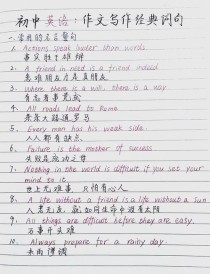 初中英语:作文写作经典词句
一.常用的名言警句
1. Actions speak louder than words.
事实胜于雄辩
2. A friend in need is a friend indeed.
患难朋友才是真朋友
3. Where there is a will, there is a way
有志者事竟成
4. All roads lead to Rome
条条大路通罗马
5. Every man has his weak side.
人人都有弱点.
6. Failure is the mother of success
失败是成功之母
7. Nothing in the world is difficult if you set your
mind to it.
世上无难事,只怕有心人
8. A life without a friend is a life without a sun
人生无友,就如同生命中没有太阳
9. All things are difficult before they are easy.
万事开头难
10. Always prepare for a rainy day.
未雨绸缪